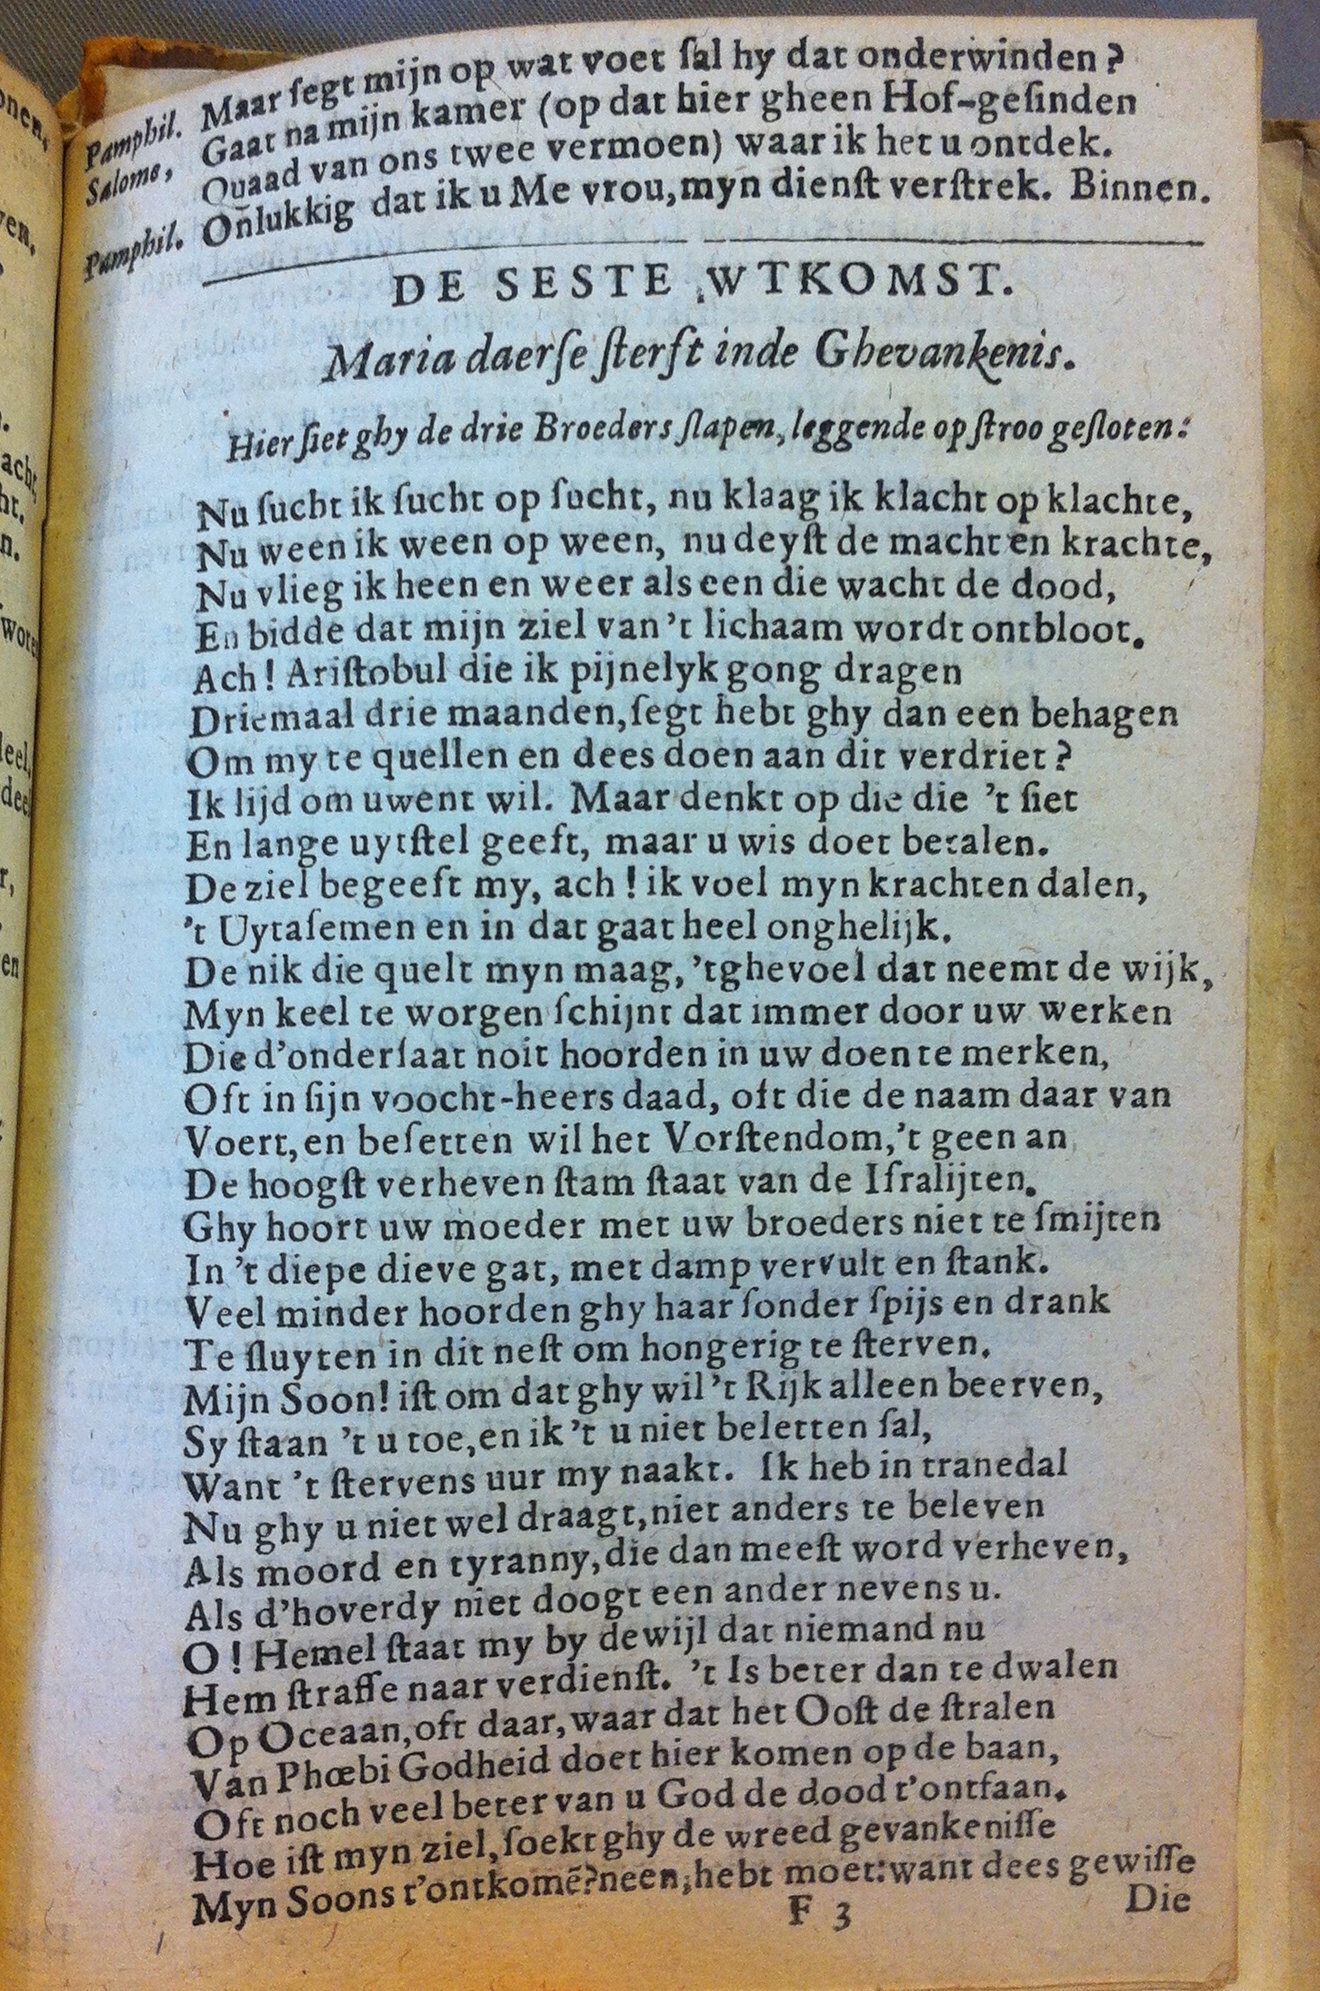 Pamphil. Maar ſegt mijn op wat voet ſal hy dat onderwinden?
Salome, Gaat na mijn kamer (op dat hier gheen Hof-geſinden
Quaad van ons twee vermoen) waar ik het u ontdek.
Pamphil. Onlukkig dat ik u Me vrou, myn dienſt verſtrek. Binnen.
DE SESTE WTKOMST.
Maria daerſe ſterft inde Ghevankenis.
Hier ſiet ghy de drie Broeders ſlapen, leggende op ſtroo geſloten:
Nu ſucht ik ſucht op ſucht, nu klaag ik klacht op klachte,
Nu ween ik ween op ween, nu deyſt de macht en krachte,
Nu vlieg ik heen en weer als een die wacht de dood,
En bidde dat mijn ziel van 't lichaam wordt ontbloot.
Ach! Ariſtobul die ik pijnelyk gong dragen
Driemaal drie maanden, ſegt hebt ghy dan een behagen
Om my te quellen en dees doen aan dit verdriet?
Ik lijd om uwent wil. Maar denkt op die die 't ſiet
En lange uytſtel geeft, maar u wis doet betalen.
De ziel begeeft my, ach! ik voel myn krachten dalen,
't Uytaſemen en in dat gaat heel onghelijk.
De nik die quelt myn maag, 't ghevoel dat neemt de wijk,
Myn keel te worgen ſchijnt dat immer door uw werken
Die d'onderſaat noit hoorden in uw doen te merken,
Oft in ſijn voocht-heers daad, oft die de naam daar van
Voert, en beſetten wil het Vorſtendom, 't geen an
De hoogſt verheven ſtam ſtaat van de Iſralijten.
Ghy hoort uw moeder met uw broeders niet te ſmijten
In 't diepe dieve gat, met damp vervult en ſtank.
Veel minder hoorden ghy haar ſonder ſpijs en drank
Te ſluyten in dit neſt om hongerig te ſterven.
Mijn Soon! iſt om dat ghy wil 't Rijk alleen beerven,
Sy ſtaan 't u toe, en ik 't u niet beletten ſal,
Want 't ſtervens uur my naakt. Ik heb in tranedal
Nu ghy u niet wel draagt, niet anders te beleven
Als moord en tyranny, die dan meeſt word verheven,
Als d'hoverdy niet doogt een ander nevens u.
O! Hemel ſtaat my by dewijl dat niemand nu
Hem ſtraffe naar verdienſt. 't Is beter dan te dwalen
Op Oceaan, oft daar, waar dat het Ooſt de ſtralen
Van Phœbi Godheid doet hier komen op de baan,
Oft noch veel beter van u God de dood t'ontfaan.
Hoe iſt myn ziel, ſoekt ghy de wreed gevankeniſſe
Myn Soons t'ontkomē? neen, hebt moet: want dees gewiſſe
F 3 Die